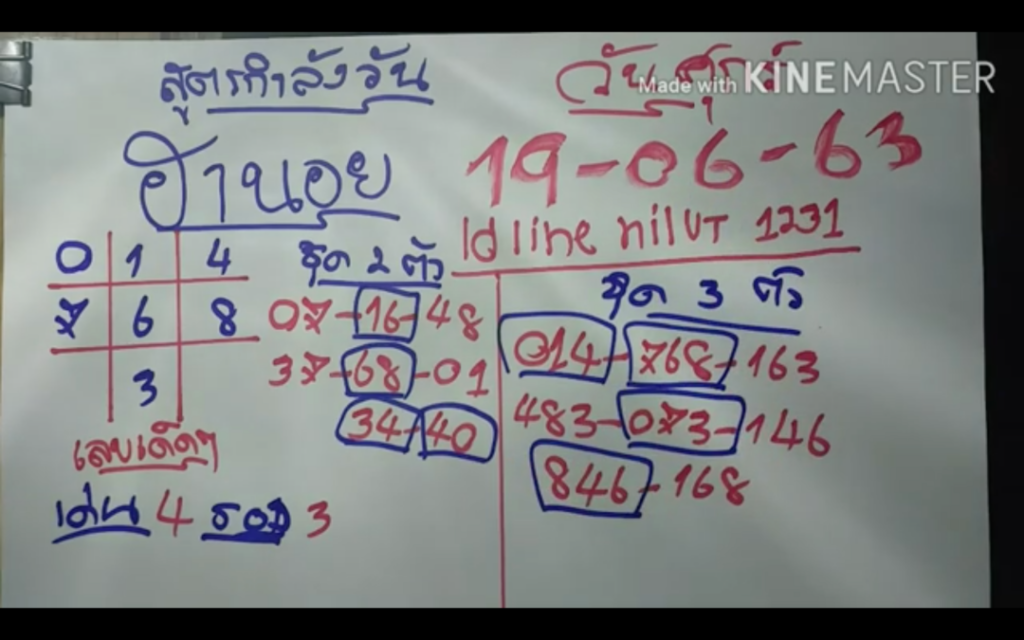 สูตรกำลังวัน
วันศุกร์
Made with KINEMASTER
ฮานอย
19-06-63
Id line nilUT 1231
0 1 4
7 6 8
3
ชุด 2 ตัว
07-16-48
37-68-01
34-40
ชุด 3 ตัว
014-768-163
483-073-146
846-168
เลขเด็ดๆ
เด่น 4 รอง 3